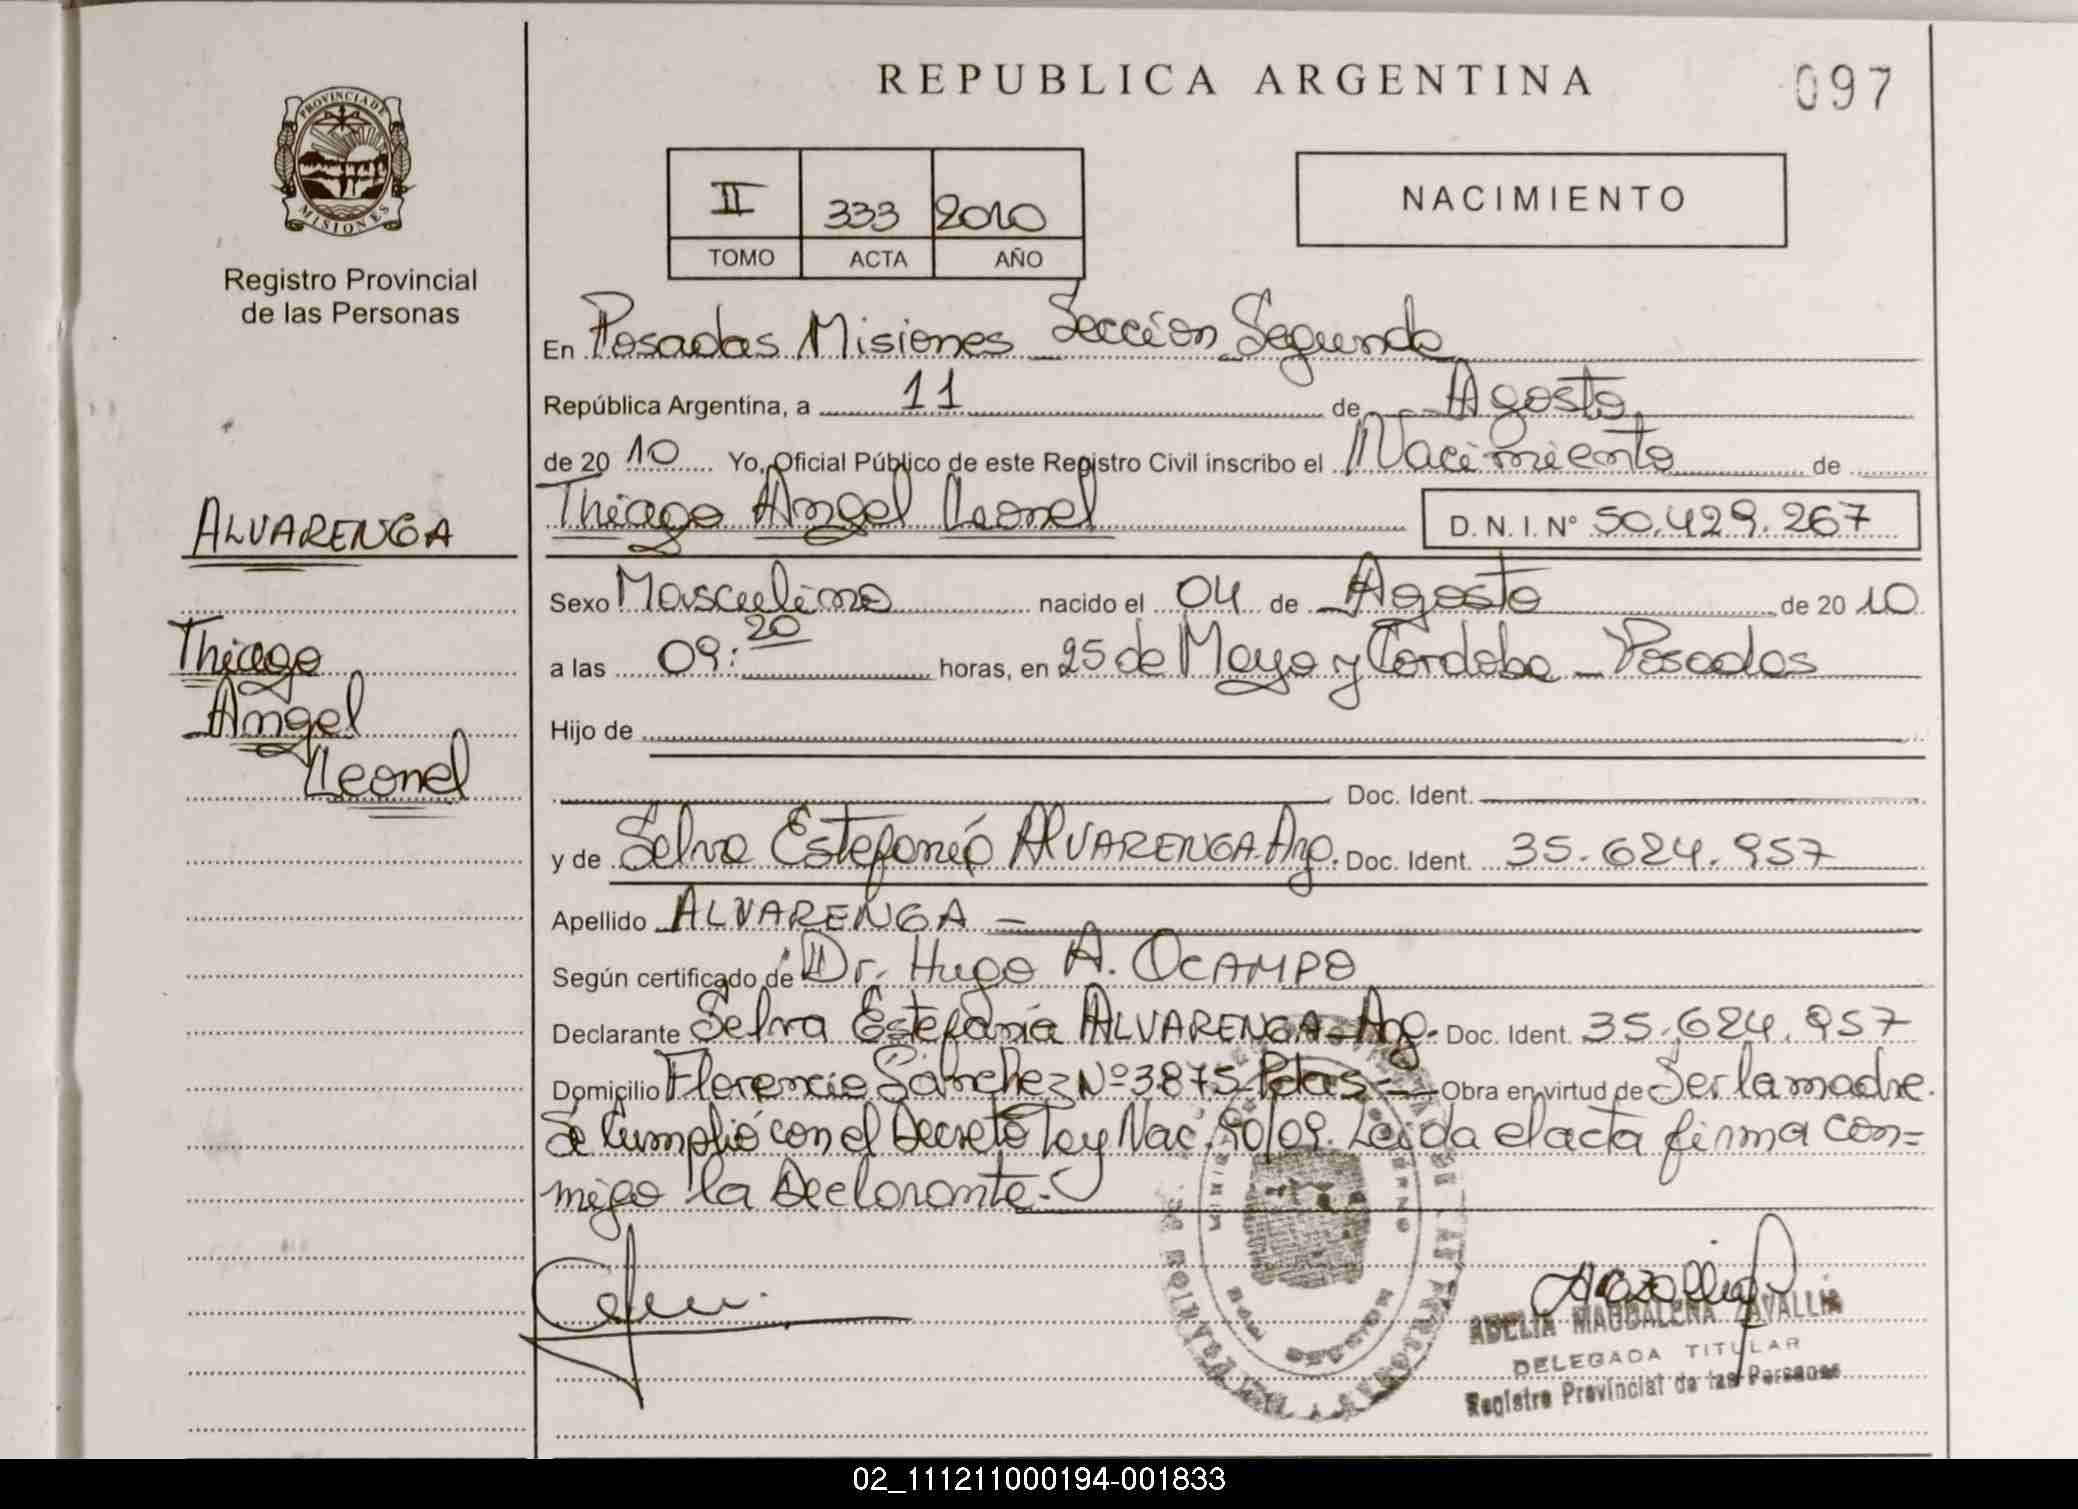 REPUBLICA ARGENTINA
097
PROVINCIA DE
MISIONES
Registro Provincial
de las Personas
II 333 2010
TOMO ACTA AÑO
NACIMIENTO
En Posadas Misiones Sección Segunda
República Argentina, a 11 de Agosto
de 20 10 Yo, Oficial Público de este Registro Civil inscribo el Nacimiento de
Thiago Angel Leonel D. N. I. Nº 50.429.267
ALVARENGA
Thiago
Angel
Leonel
Sexo Masculino nacido el 04 de Agosto de 20 10
a las 09:20 horas, en 25 de Mayo y Cordoba - Posadas
Hijo de
Doc. Ident.
y de Selva Estefanía ALVARENGA-Arg. Doc. Ident. 35.624.957
Apellido ALVARENGA
Según certificado de Dr. Hugo A. OCAMPO
Declarante Selva Estefanía ALVARENGA-Arg. Doc. Ident. 35.624.957
Domicilio Florencio Sánchez Nº 3875-Pdas- Obra en virtud de Ser la madre.
Se Cumplió con el Decreto Ley Nac. 90/09. Leida el acta firma con=
migo la Declarante.
ADELIA MAGDALENA ZAVALLIA
DELEGADA TITULAR
Registro Provincial de las Personas
02_111211000194-001833